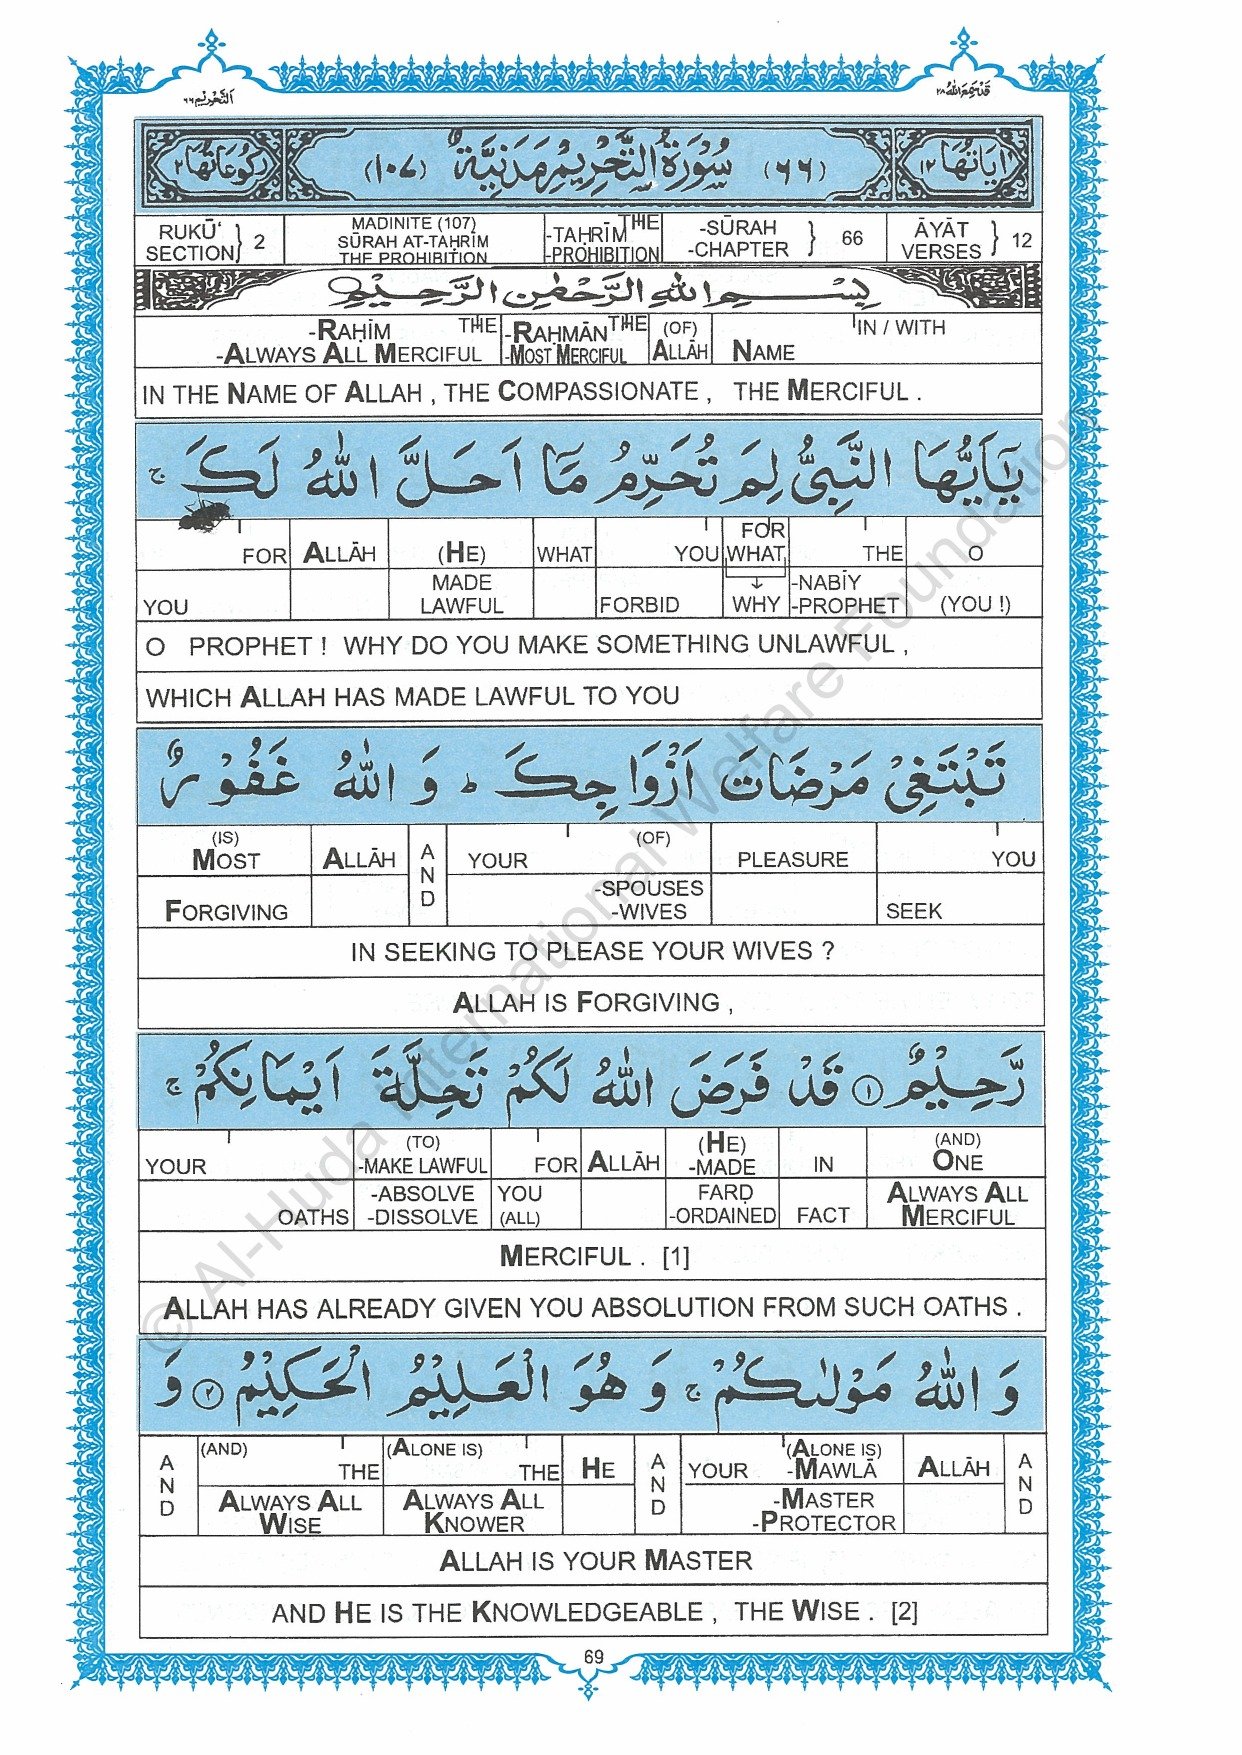 اَلتَّحْرِيْم ٦٦
قَدْ سَمِعَ اللّٰهُ ٢٨
اٰيَاتُهَا ١٢
(٦٦) سُوْرَةُ التَّحْرِيْمِ مَدَنِيَّةٌ (١٠٧)
رُكُوْعَاتُهَا ٢
RUKŪ‘ SECTION } 2
MADINITE (107) SŪRAH AT-TAḤRĪM THE PROHIBITION
THE -TAḤRĪM -PROHIBITION
-SŪRAH -CHAPTER } 66
ĀYĀT VERSES } 12
بِسْمِ اللّٰهِ الرَّحْمٰنِ الرَّحِيْمِ
-RAḤĪM THE -RAḤMĀN THE (OF) IN / WITH
-ALWAYS ALL MERCIFUL -MOST MERCIFUL ALLĀH NAME
IN THE NAME OF ALLAH , THE COMPASSIONATE , THE MERCIFUL .
يٰۤاَيُّهَا النَّبِىُّ لِمَ تُحَرِّمُ مَاۤ اَحَلَّ اللّٰهُ لَكَ ج
FOR
FOR ALLĀH (HE) WHAT YOU WHAT THE O
MADE ↓ -NABĪY
YOU LAWFUL FORBID WHY -PROPHET (YOU !)
O PROPHET ! WHY DO YOU MAKE SOMETHING UNLAWFUL ,
WHICH ALLAH HAS MADE LAWFUL TO YOU
تَبْتَغِىْ مَرْضَاتَ اَزْوَاجِكَ ط وَ اللّٰهُ غَفُوْرٌ
(IS) (OF)
MOST ALLĀH AND YOUR PLEASURE YOU
-SPOUSES
FORGIVING -WIVES SEEK
IN SEEKING TO PLEASE YOUR WIVES ?
ALLAH IS FORGIVING ,
رَّحِيْمٌ ١ قَدْ فَرَضَ اللّٰهُ لَكُمْ تَحِلَّةَ اَيْمَانِكُمْ ج
(TO) (HE) (AND)
YOUR -MAKE LAWFUL FOR ALLĀH -MADE IN ONE
-ABSOLVE YOU FARḌ ALWAYS ALL
OATHS -DISSOLVE (ALL) -ORDAINED FACT MERCIFUL
MERCIFUL . [1]
ALLAH HAS ALREADY GIVEN YOU ABSOLUTION FROM SUCH OATHS .
وَ اللّٰهُ مَوْلٰىكُمْ ج وَ هُوَ الْعَلِيْمُ الْحَكِيْمُ ٢ وَ
(AND) (ALONE IS) (ALONE IS)
AND THE THE HE AND YOUR -MAWLĀ ALLĀH AND
ALWAYS ALL ALWAYS ALL -MASTER
WISE KNOWER -PROTECTOR
ALLAH IS YOUR MASTER
AND HE IS THE KNOWLEDGEABLE , THE WISE . [2]
69
© Al-Huda International Welfare Foundation